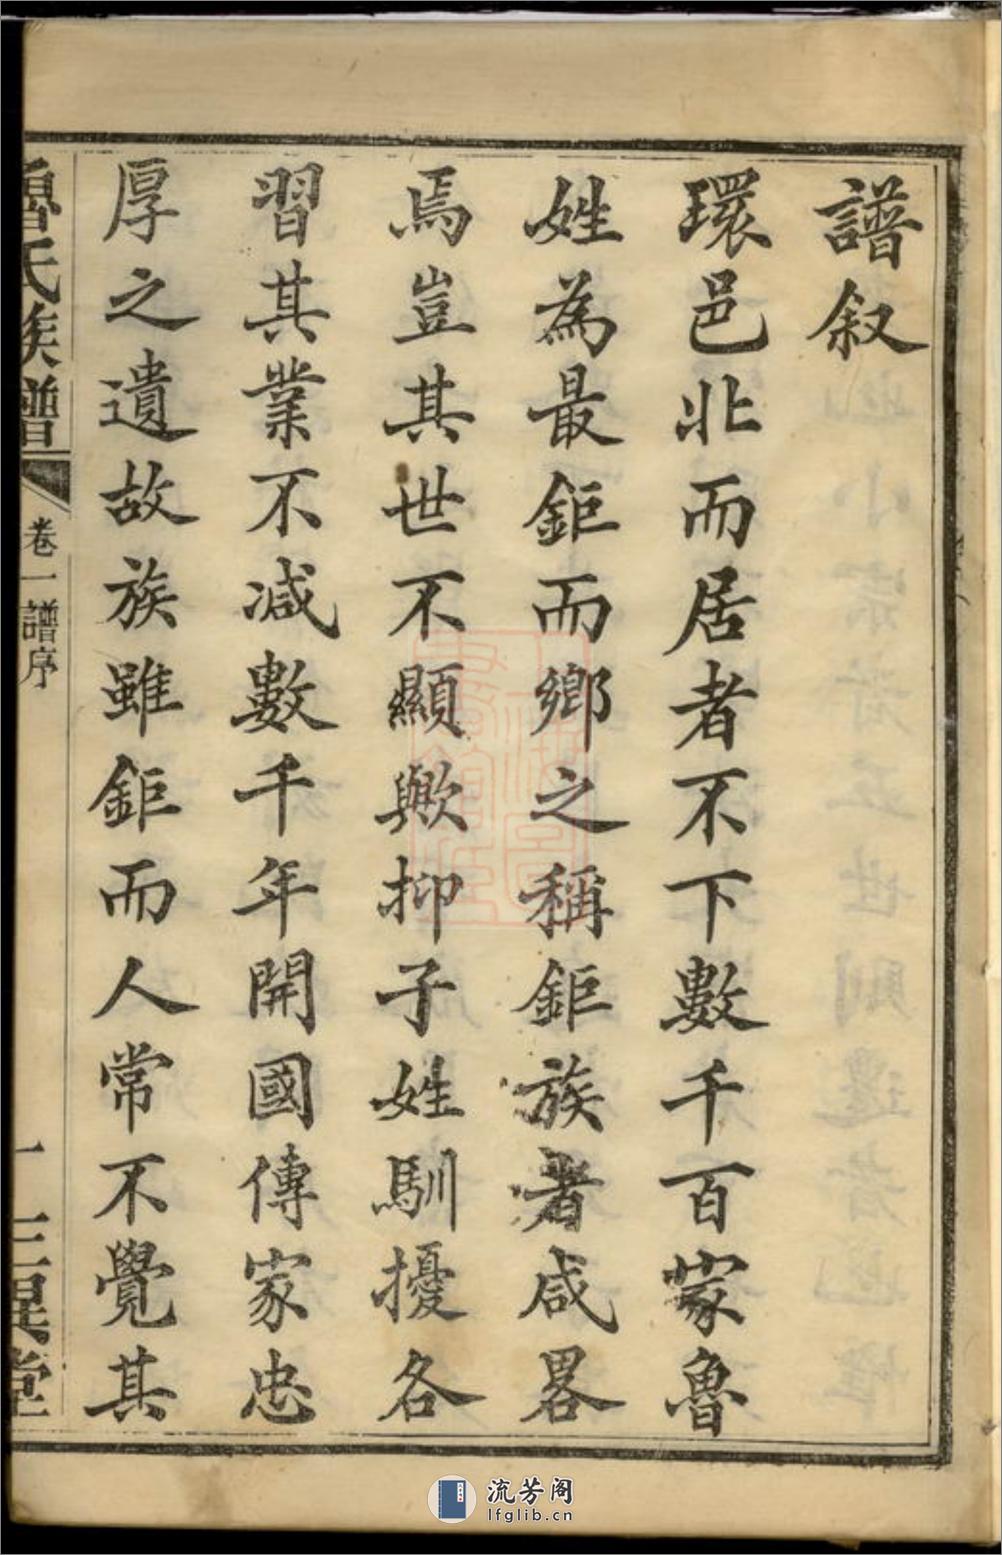 譜叙
環邑北而居者不下數千百家魯
姓為最鉅而鄉之稱鉅族者咸畧
焉豈其世不顯歟抑子姓馴擾各
習其業不减數千年開國傳家忠
厚之遺故族雖鉅而人常不覺其
魯氏族譜 卷一譜序 一 三異堂
流芳阁
lfglib.cn